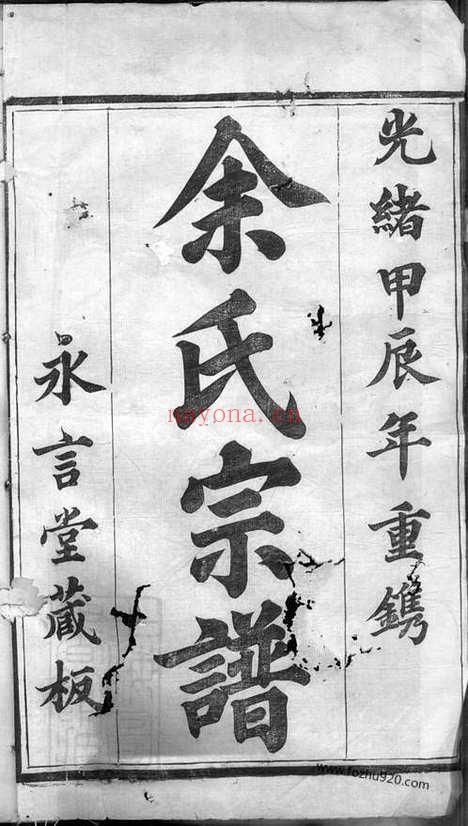 光緒甲辰年重鐫
余氏宗譜
永言堂藏板
nayona.cn
www.fozhu920.com